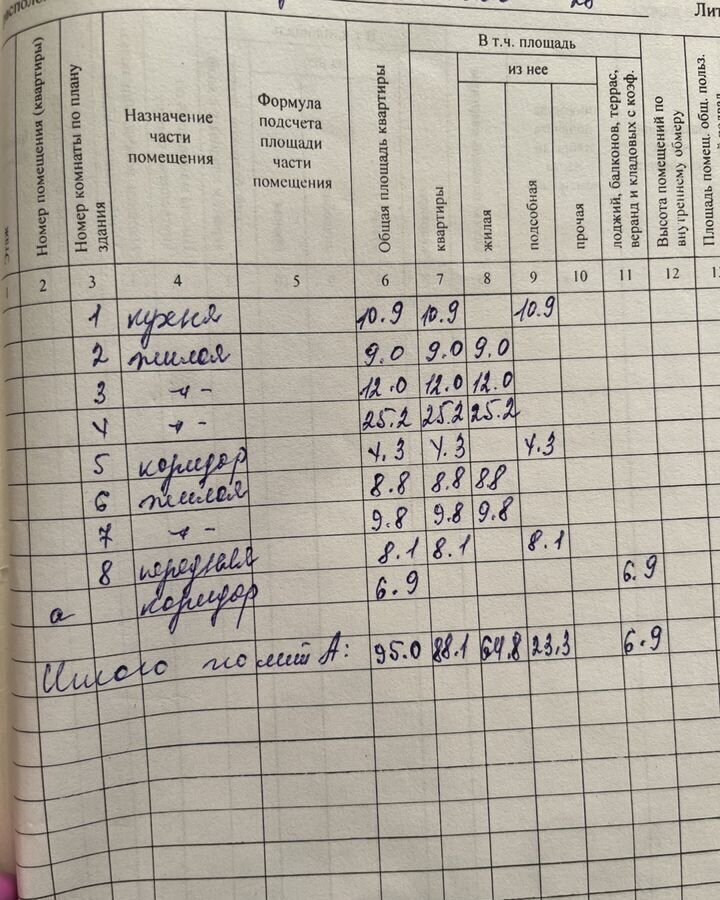 Лит
Этаж
Номер помещения (квартиры)
Номер комнаты по плану здания
Назначение части помещения
Формула подсчета площади части помещения
Общая площадь квартиры
В т.ч. площадь
квартиры
из нее
жилая
подсобная
прочая
лоджий, балконов, террас, веранд и кладовых с коэф.
Высота помещений по внутреннему обмеру
Площадь помещ. общ. польз.
1 2 3 4 5 6 7 8 9 10 11 12
1 кухня 10.9 10.9 10.9
2 жилая 9.0 9.0 9.0
3 -"- 12.0 12.0 12.0
4 -"- 25.2 25.2 25.2
5 коридор 4.3 4.3 4.3
6 жилая 8.8 8.8 8.8
7 -"- 9.8 9.8 9.8
8 передняя 8.1 8.1 8.1
а коридор 6.9 6.9
Итого по лит А: 95.0 88.1 64.8 23.3 6.9